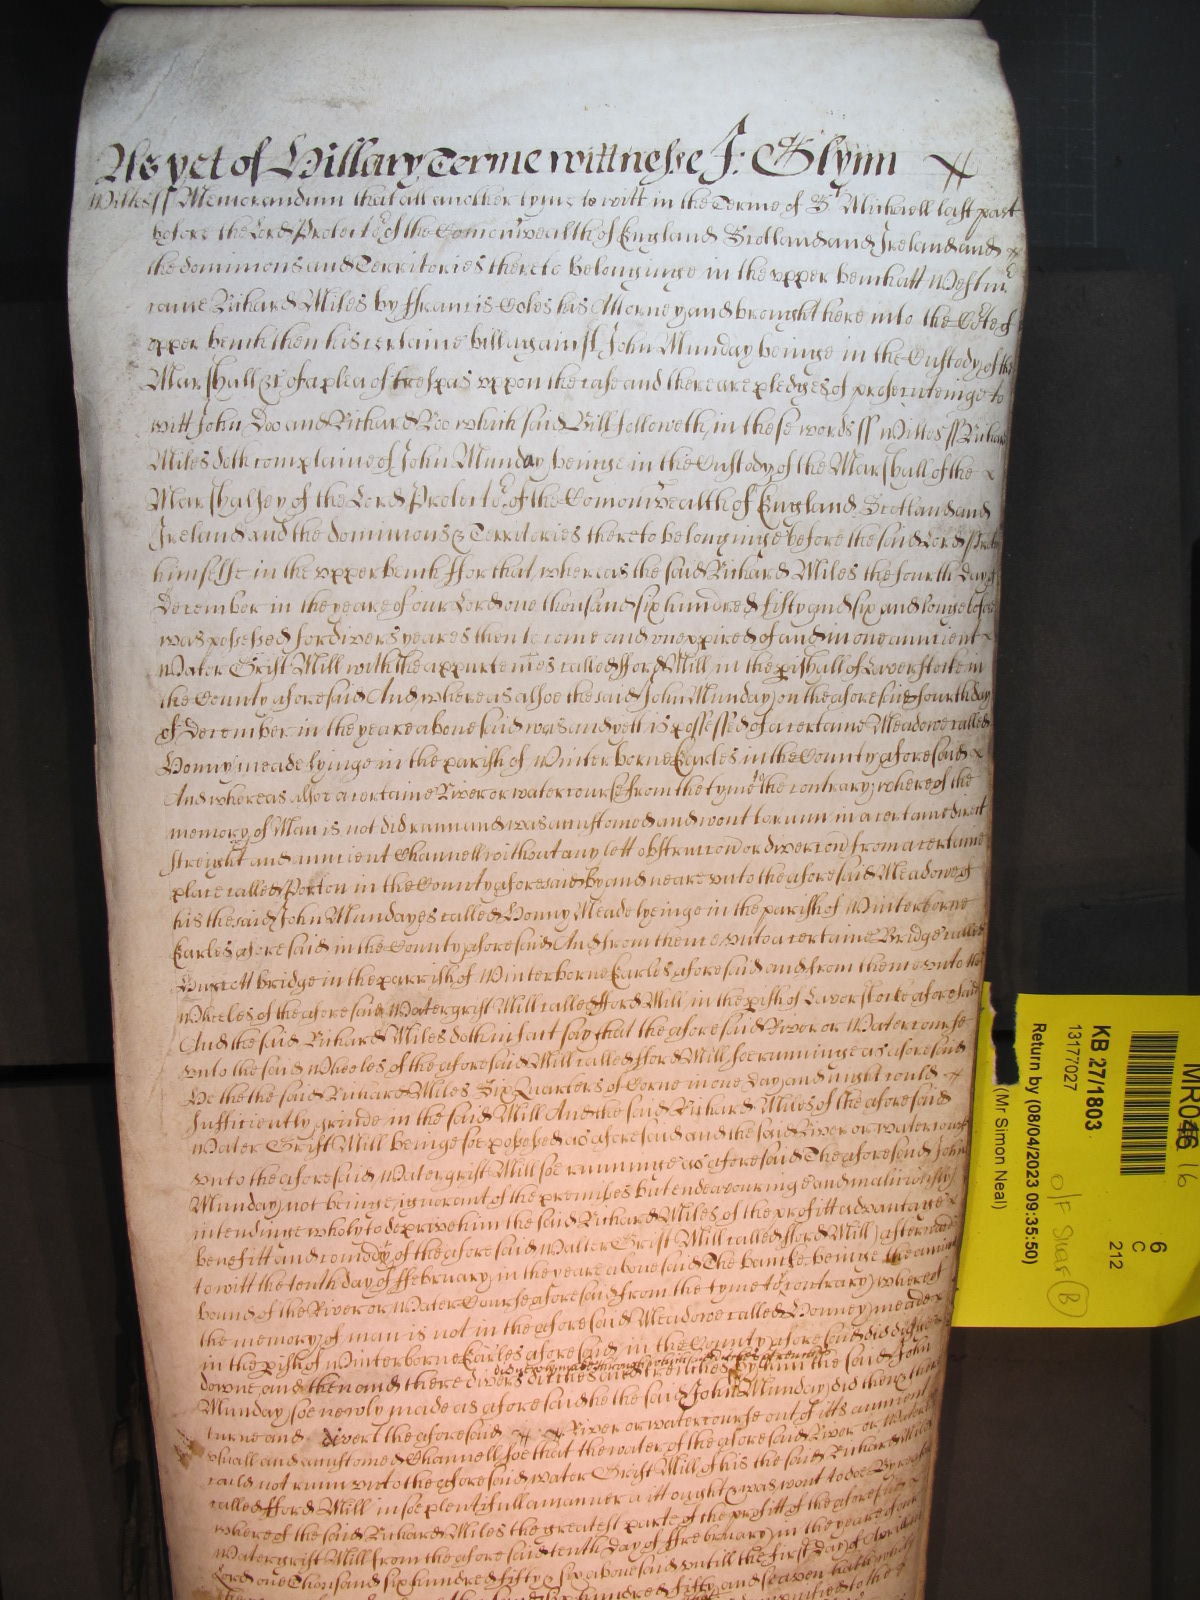 As yet of Hillary Terme wittnesse J: Glynn
Wiltess ss Memorandum that att another tyme to witt in the Terme of St Michaell last past
before the Lord Protector of the Comonwealth of England Scotland and Ireland and
the dominions and Territories thereto belonginge in the upper bench att Westmr
came Richard Miles by ffrancis Coles his Attorney and brought here into the Cort of
upper bench then his certaine bill against John Munday beinge in the Custody of the
Marshall &c of a plea of trespas uppon the case and there are pledges of prosecuteinge to
witt John Doo and Richard Roo which said Bill followeth in these words ss Wiltes ss Richard
Miles doth complaine of John Munday beinge in the Custody of the Marshall of the
Marshalsey of the Lord Protector of the Comonwealth of England Scotland and
Ireland and the dominions & Territories thereto belonginge before the said Lord Protector
himselfe in the upper bench ffor that whereas the said Richard Miles the fourth day of
December in the yeare of our Lord one thousand six hundred fifty and six and longe before
was possessed for divers yeares then to come and unexpired of and in one auncient
Water Grist Mill with the appurtenncs called fford Mill in the pish of Laverstocke in
the County aforesaid And whereas alsoe the said John Munday on the aforesaid fourth day
of December in the yeare above said was and yett is possessed of a certaine Meadowe called
Honny meade lyinge in the parish of Winterborne Earles in the County aforesaid
And whereas alsoe a certaine River or watercourse from the tyme the contrary whereof the
memory of Man is not did runn and was accustomed and wont to runn in a certaine direct
streight and auncient Channell without any lett obstruccon or divercon from a certaine
place called Porton in the County aforesaid by and neare unto the aforesaid Meadowe of
his the said John Mundayes called Honny Meade lyeinge in the parish of Winterborne
Earles aforesaid in the County aforesaid And from thence unto a certaine Bridge called
bridge in the parrish of Winterborne Earles aforesaid and from thence unto the
Wheeles of the aforesaid Watergrist Mill called fford Mill in the pish of Laverstocke aforesaid
And the said Richard Miles doth in fact say that the aforesaid River or Watercourse
unto the said Wheeles of the aforesaid Mill called fford Mill soe runninge as aforesaid
He the the said Richard Miles Six Quarters of Corne in one day and night could
sufficiently grinde in the said Mill And the said Richard Miles of the aforesaid
Water Grist Mill beinge soe possessed as aforesaid and the said River or watercourse
unto the aforesaid Watergrist Mill soe runninge as aforesaid The aforesaid John
Munday not beinge ignorant of the premisses but endeavouringe and maliciously
intendinge wholy to deprive him the said Richard Miles of the profitt advantage
benefitt and comody of the aforesaid Watter Grist Mill called fford Mill afterwards
to witt the tenth day of ffebruary in the yeare abovesaid The bancke beinge the auncient
bound of the River or Water Course aforesaid from the tyme the contrary whereof
the memory of man is not in the aforesaid Meadowe called Honney meade
in the pish of Winterborne Earles aforesaid in the County aforesaid did digg
downe and then and there divers ditches and trenches by him the said John
Munday soe newly made as aforesaid he the said John Munday did then
turne and divert the aforesaid River or watercourse out of itts auncient
usuall and accustomed Channell soe that the water of the aforesaid River or
could not runn unto the aforesaid water Grist Mill of his the said Richard Miles
called fford Mill in soe plentifull a manner as itt ought & was wont to doe By reason
whereof the said Richard Miles the greatest parte of the profitt of the aforesaid
Watergrist Mill from the aforesaid tenth day of ffebruary in the yeare of our
Lord one Thousand six hundred fifty & six abovesaid untill the first day of Aprill
hundred fifty and seaven hath
MR046 16
6
C
212
KB 27/1803
13177027
Return by (08/04/2023 09:35:50)
(Mr Simon Neal)
B